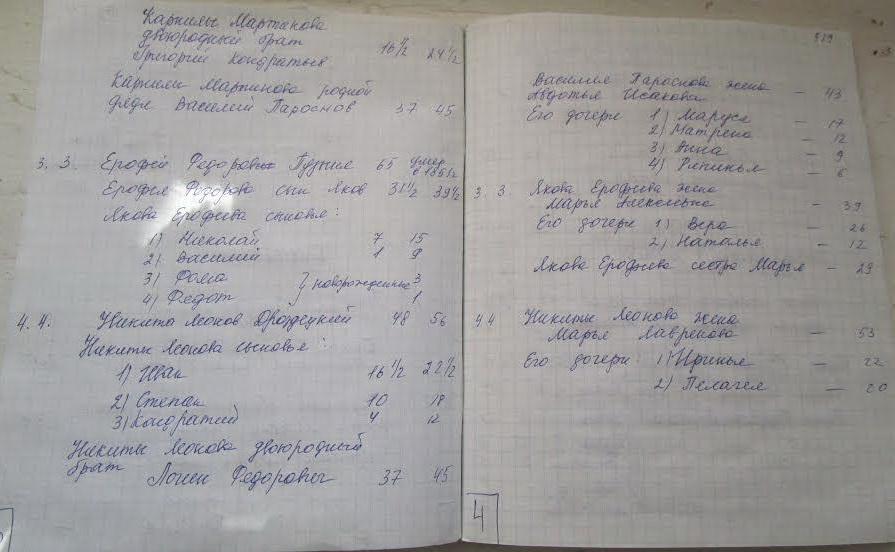 Карнилы Мартинова
двоюродный брат
Григорий Кондратьев 16 1/2 24 1/2
Карнили Мартинова родной
дядя Василий Парфенов 37 45
3. 3. Ерофей Федорович 65 умер
в 1851г
Ерофея Федорова сын Яков 31 1/2 39 1/2
Якова Ерофеева сыновья:
1) Николай 7 15
2) Василий 1 9
3) Фома } новорожденные 3
4) Федот 1
4. 4. Никита Леонов Дроздецкий 48 56
Никиты Леонова сыновья:
1) Иван 16 1/2 22 1/2
2) Степан 10 18
3) Кондратий 4 12
Никиты Леонова двоюродный
брат
Логин Федорович 37 45
Василия Парфенова жена
Авдотья Исакова — 43
Его дочери 1) Маруся — 17
2) Матрена — 12
3) Анна — 9
4) — 6
3. 3. Якова Ерофеева жена
Марья Алексеевна — 39
Его дочери 1) Вера — 26
2) Наталья — 12
Якова Ерофеева сестра Марья — 29
4 4 Никиты Леонова жена
Марья Лавренова — 53
Его дочери 1) Иринья — 22
2) Пелагея — 20
4